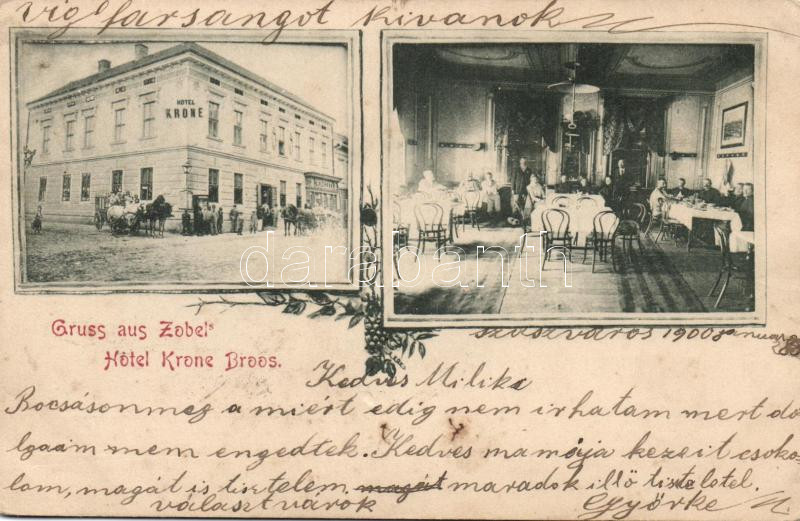 víg farsangot kívánok
HÔTEL
KRONE
darabanth
Gruss aus Zobel's
Hôtel Krone Broos.
szászváros 1900 január
Kedves Milike
Bocsásonmeg a miért edig nem irhatam mert do
lgaim nem engedtek. Kedves mamája kezeit csoko
lom, magát is tisztelem magát maradok illő tisztelotel.
választ várok Györke